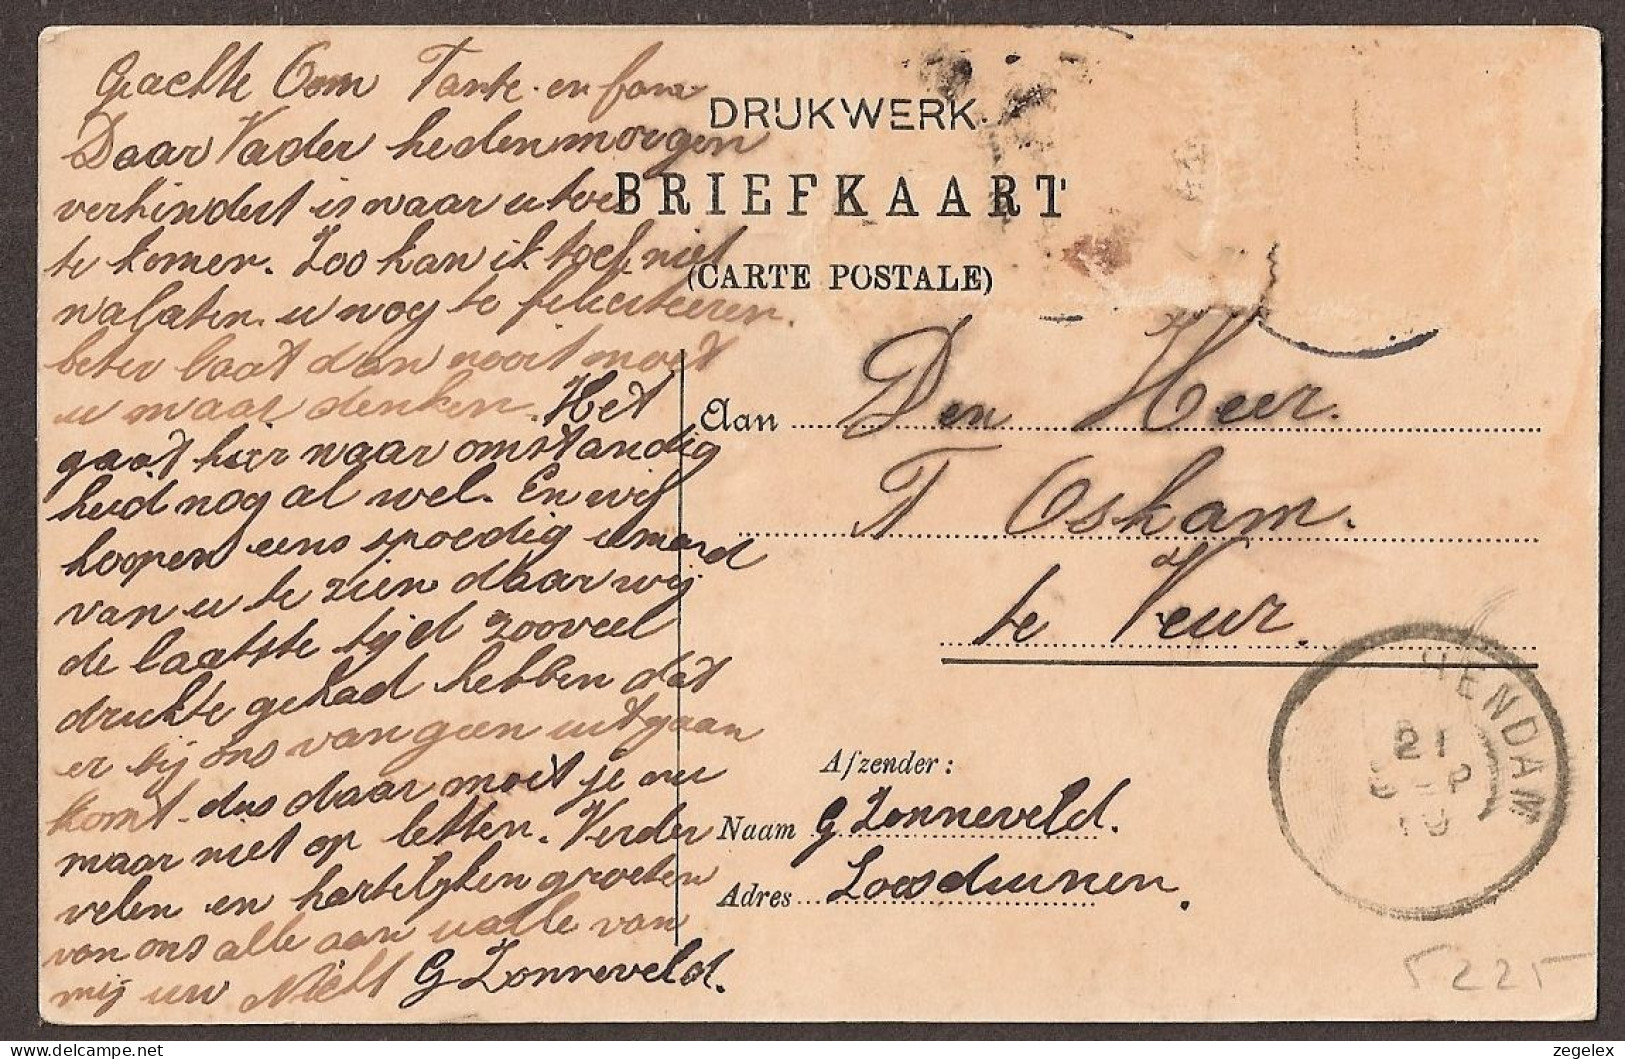 Geachte Oom Tante en fam
Daar Vader hedenmorgen
verhindert is naar u toe
te komen. Zoo kan ik toch niet
nalaten u nog te feliciteeren.
beter laat dan nooit moet
u maar denken. Het
gaat hier naar omstandig
heid nog al wel. En wij
hoopen eens spoedig iemand
van u te zien daar wij
de laatste tijd zooveel
drukte gehad hebben dat
er bij ons van geen uitgaan
komt. dus daar moet je nu
maar niet op letten. Verder
velen en hartelijken groeten
van ons alle aan u alle van
mij uw Nicht G Zonneveld.
DRUKWERK.
BRIEFKAART
(CARTE POSTALE)
Aan Den Heer.
T Oskam.
te Veur.
Afzender:
Naam G Zonneveld.
Adres Loosduinen.
HENDAM
21
5225
zegelex